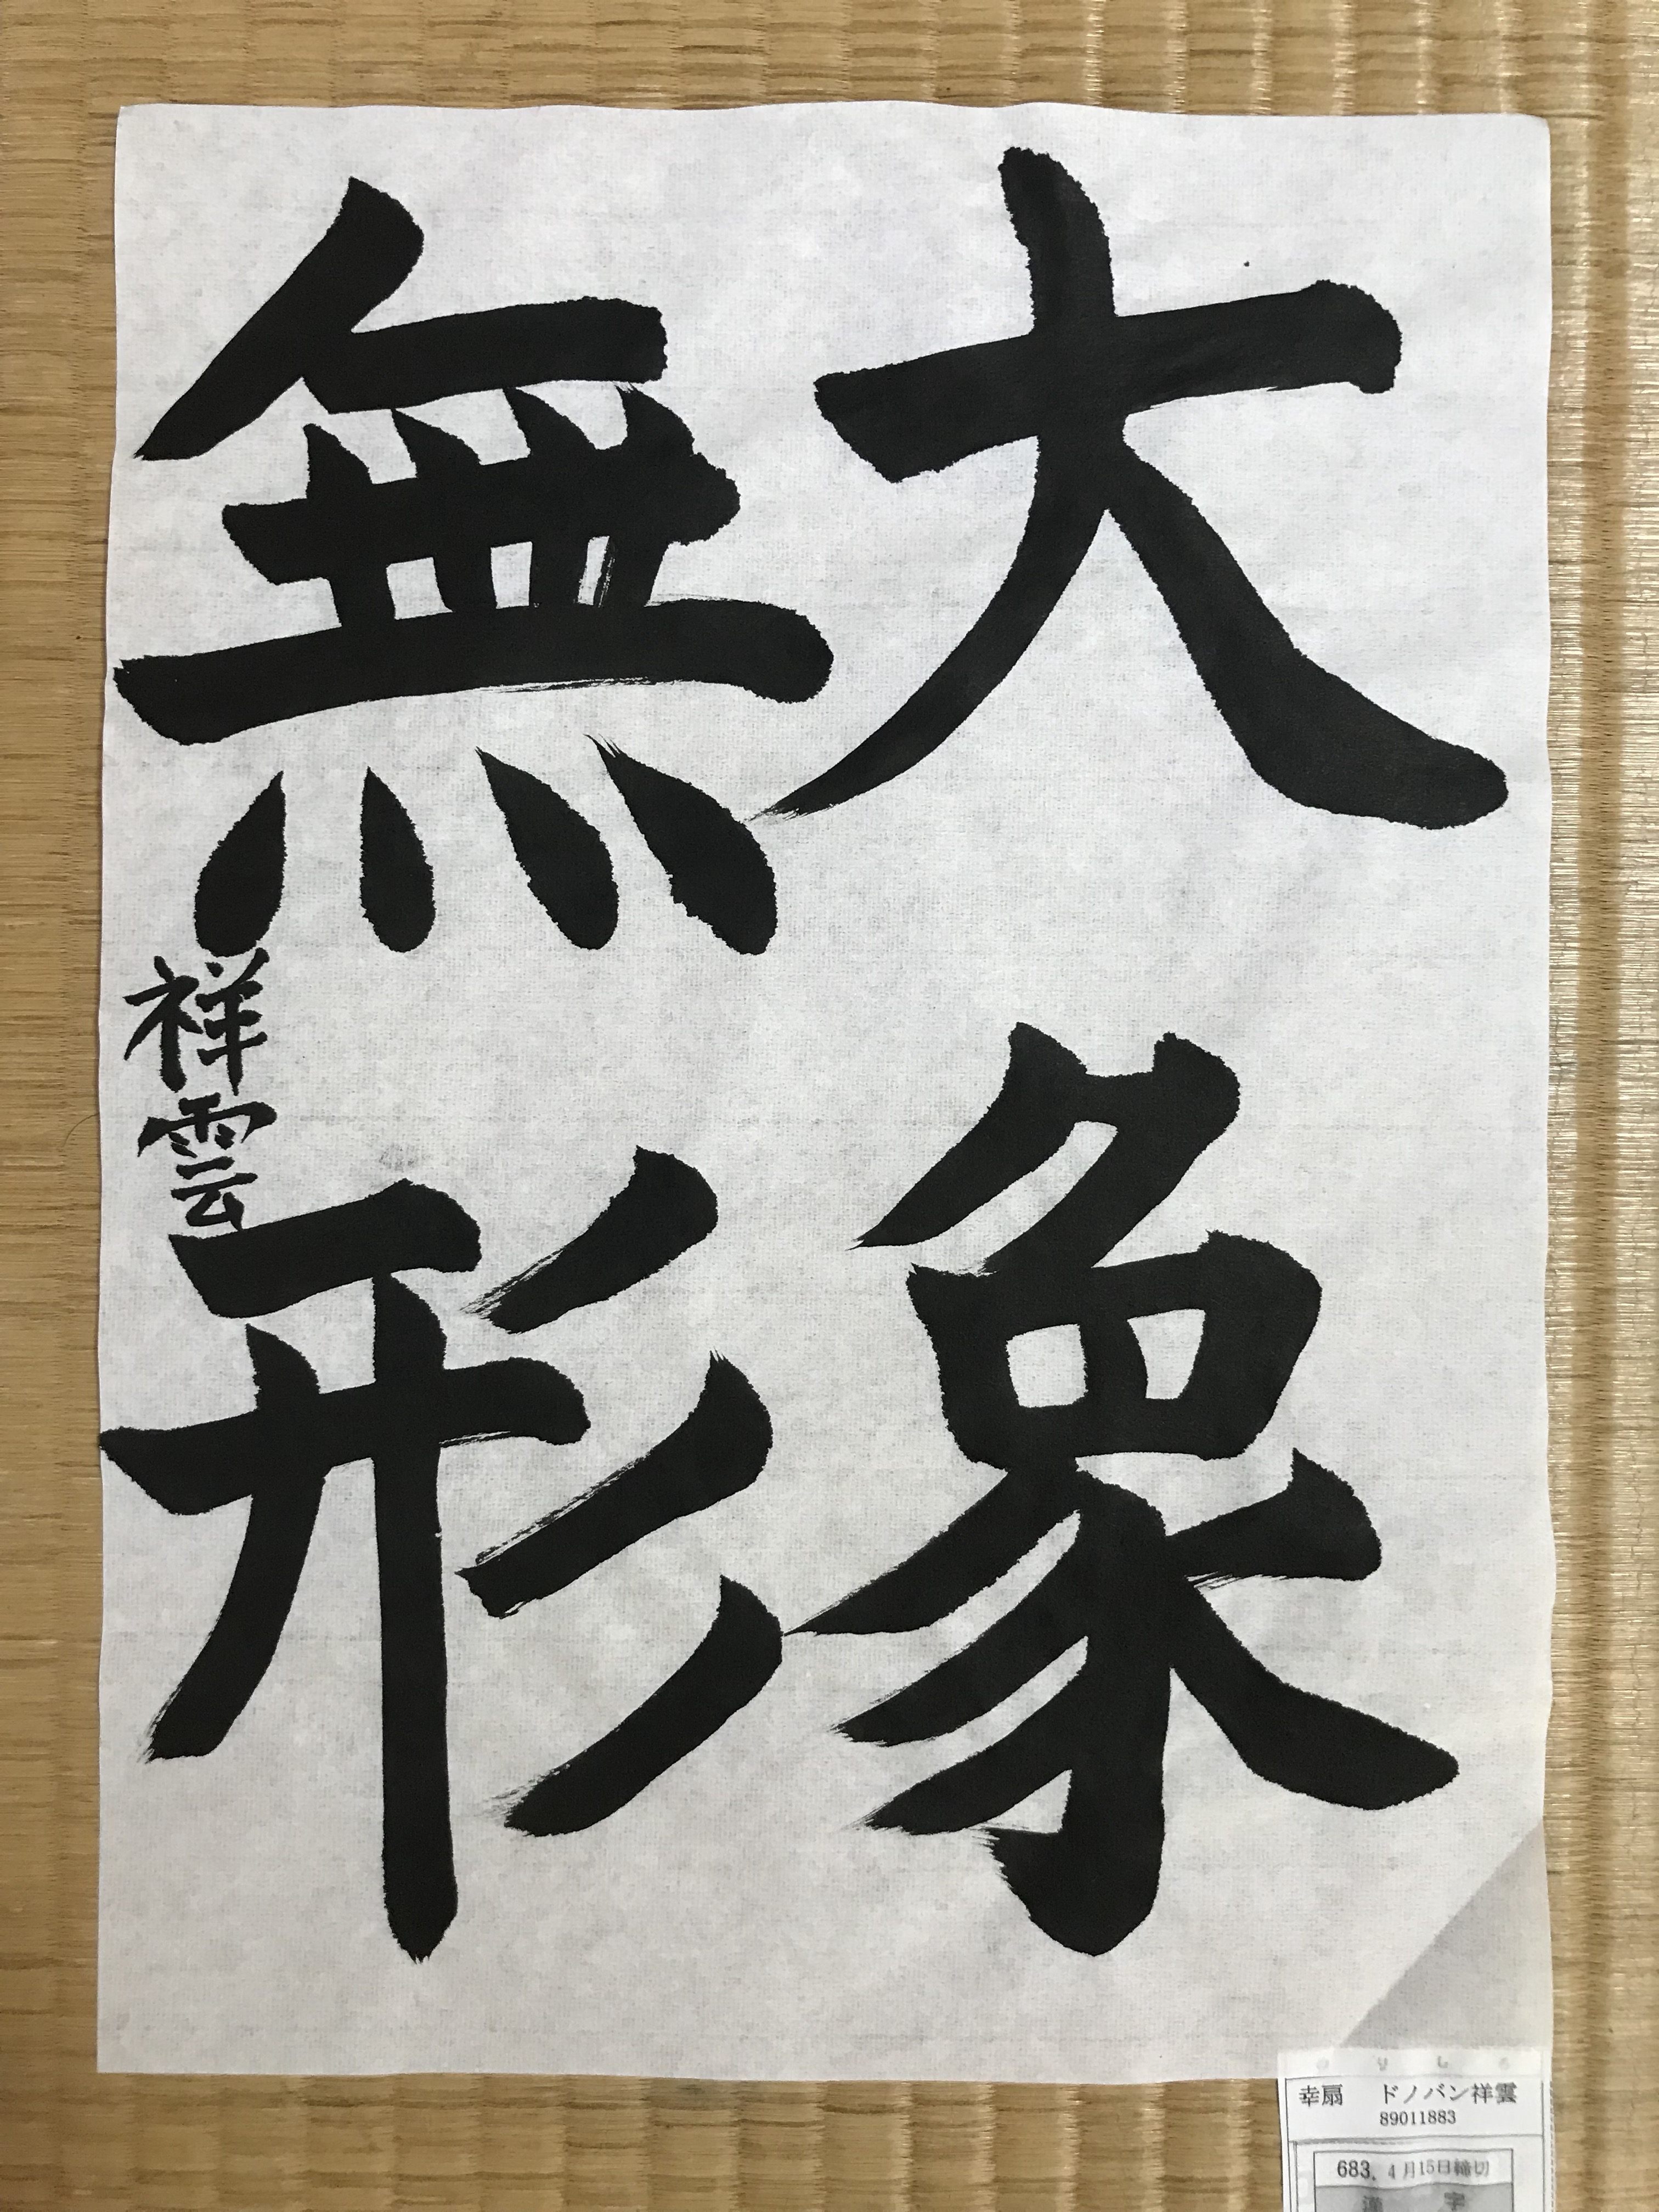 大象
無形
祥雲
のりしろ
幸扇 ドノバン祥雲
89011883
683. 4月15日締切
漢字